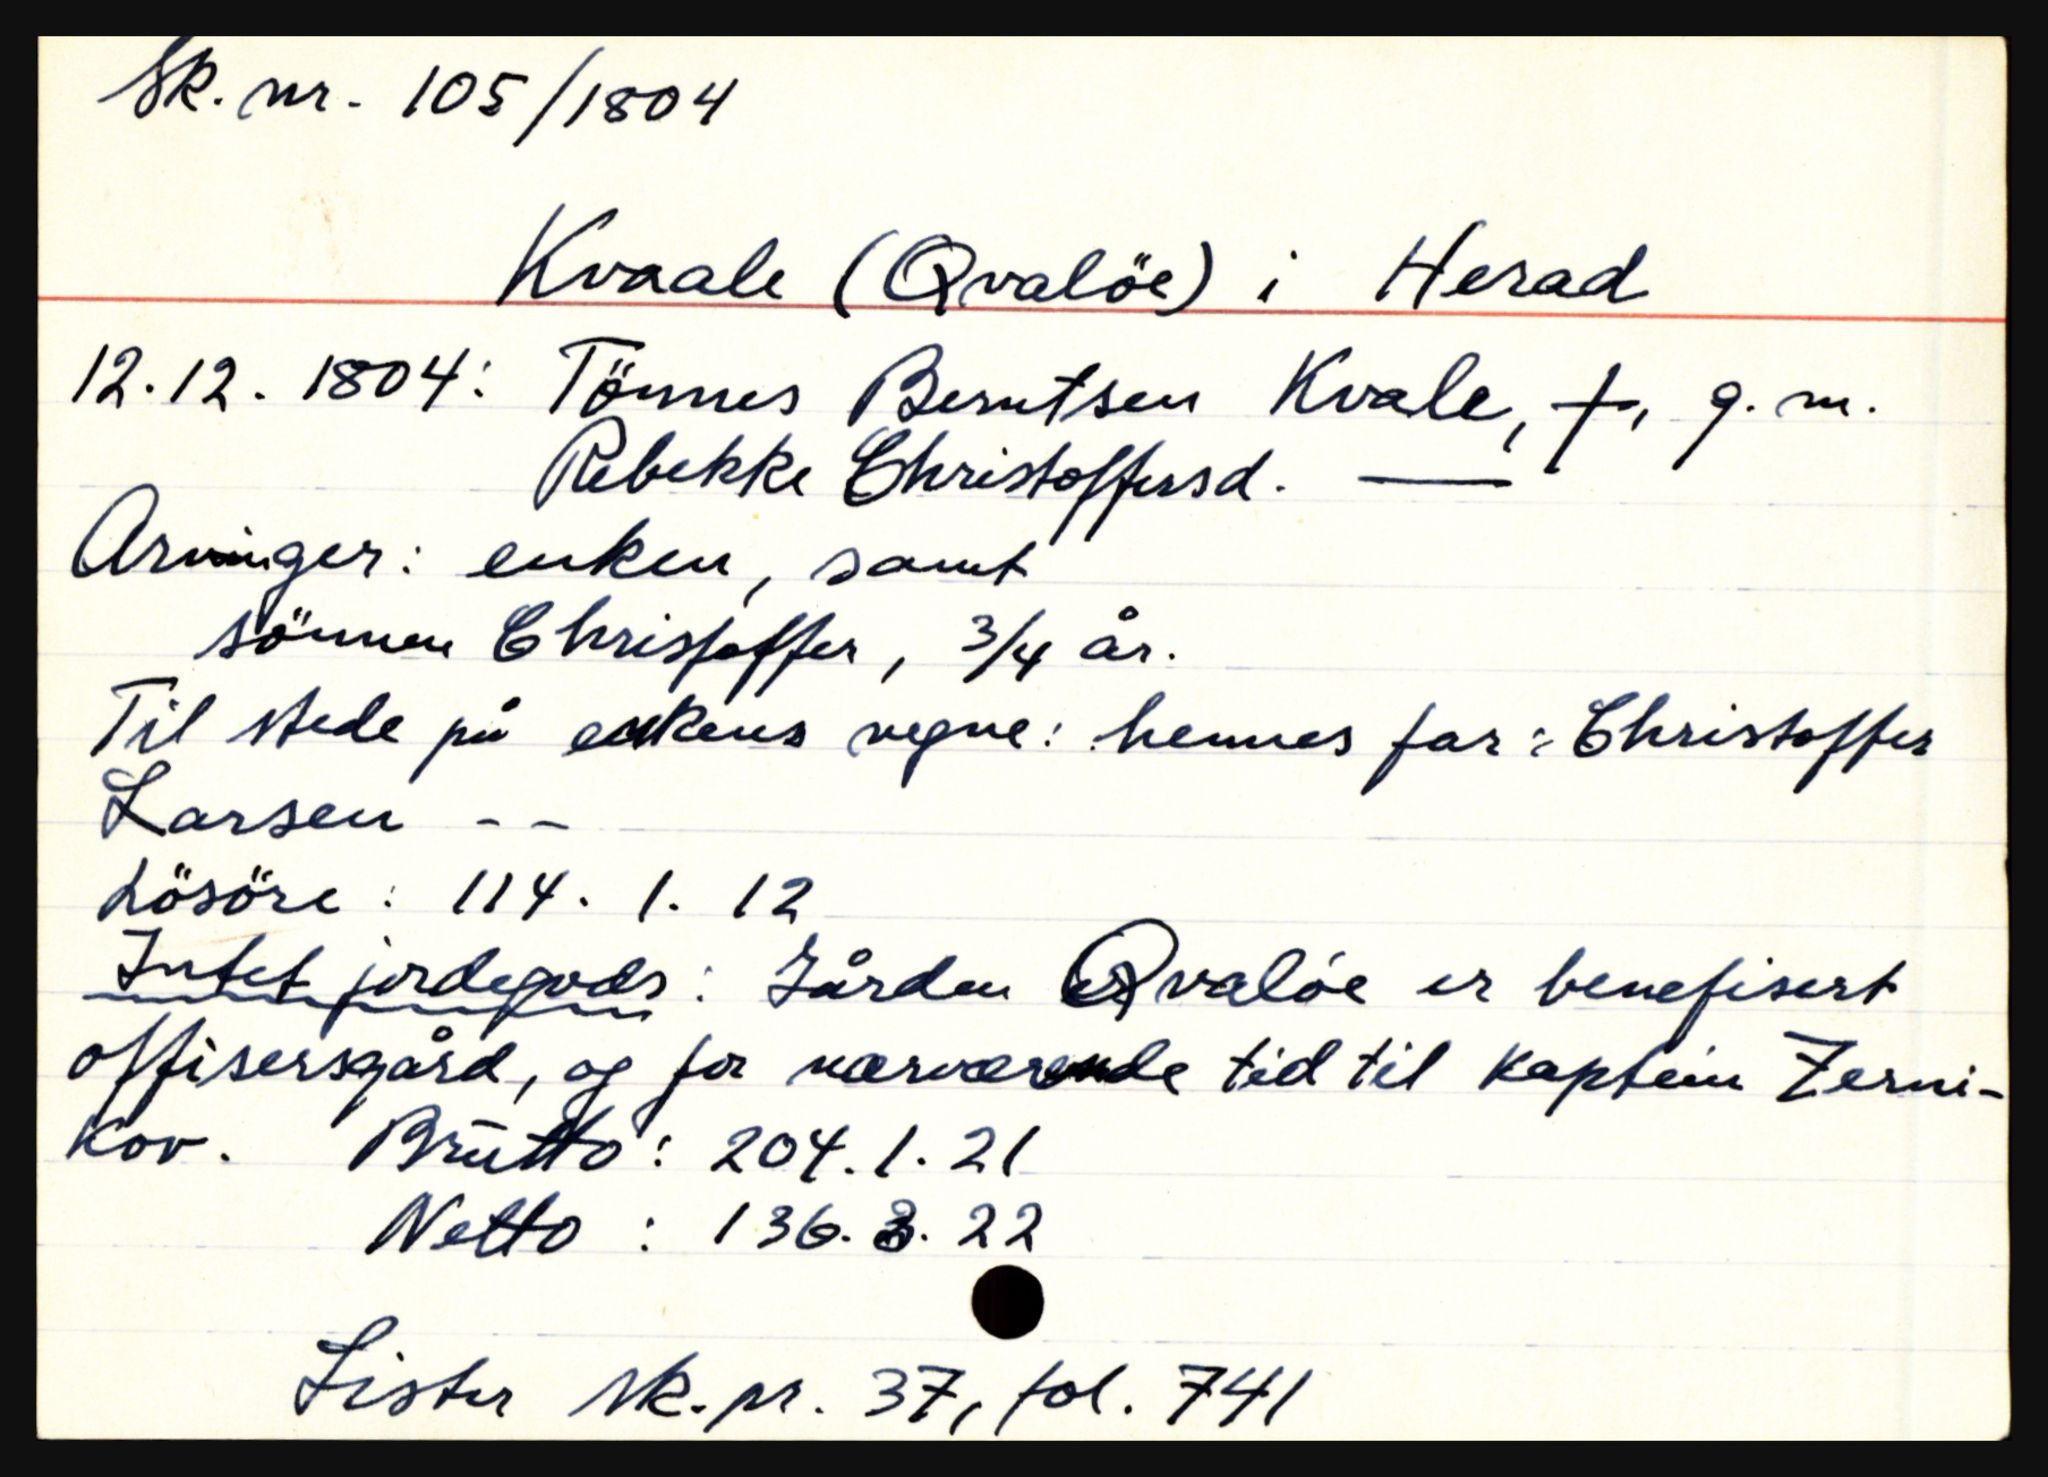 Sk. nr. 105/1804
Kvaale (Qvalöe) i Herad
12.12.1804: Tönnes Berntsen Kvale, +, g. m.
Rebekke Christoffersd. —
Arvinger: enken, samt
sönnen Christoffer, 3/4 år.
Til stede på enkens vegne: hennes far: Christoffer
Larsen - -
Lösöre: 114. 1. 12
Intet jordegods: Gården Qvalöe er benefisert
offisersgård, og for nærværende tid til kaptein Zerni-
kov. Brutto: 204. 1. 21
Netto: 136. 3. 22
Lister sk. pr. 37, fol. 741